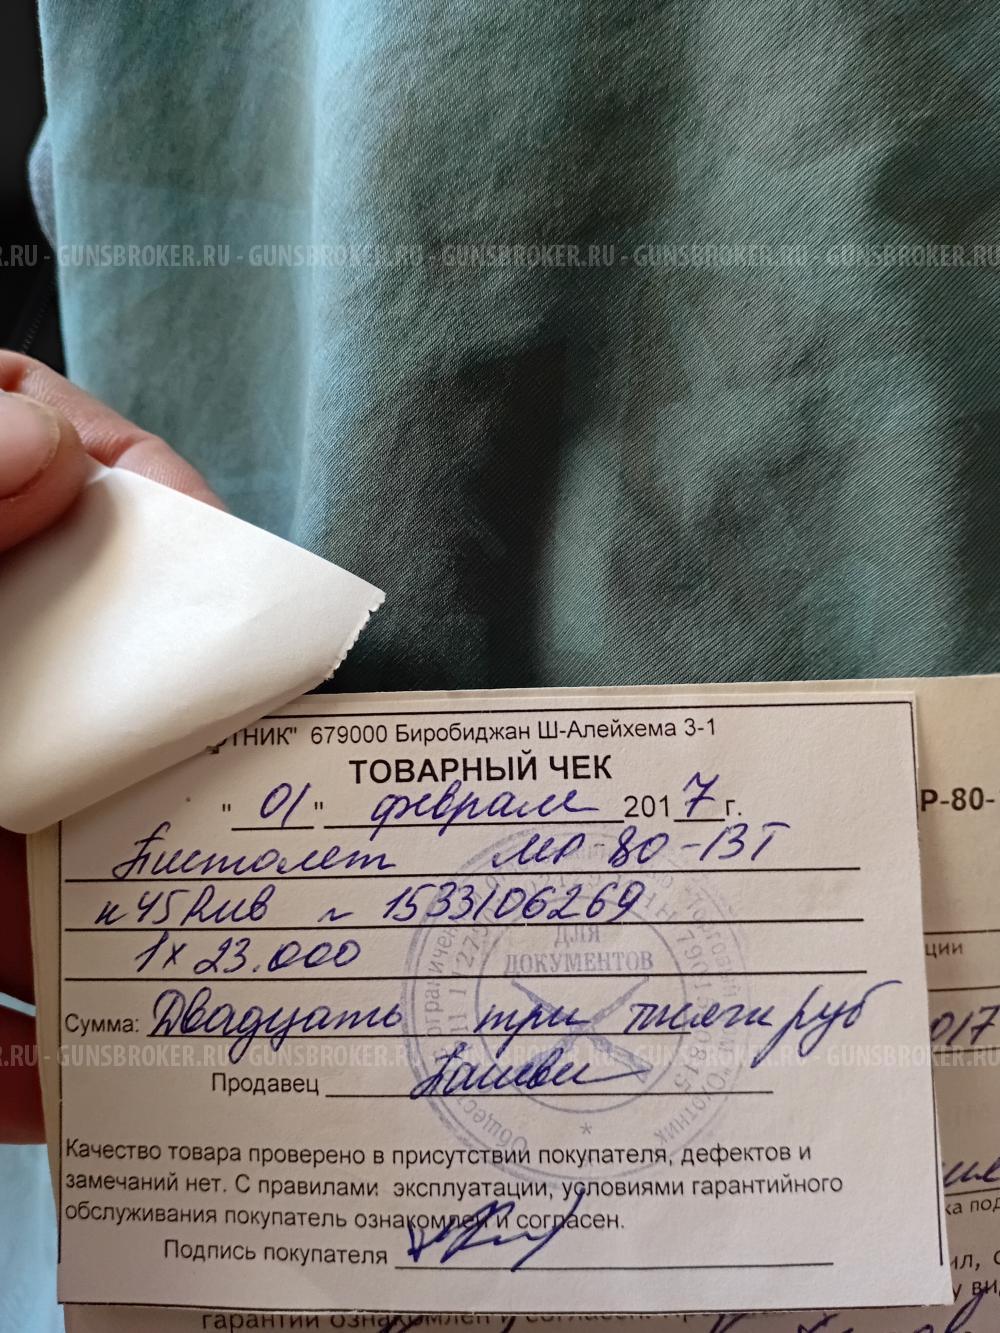 R.RU - GUNSBROKER.RU - GUNSBROKER.RU - GUNSBROKER.RU - GUNSBROKER.RU - GUNSBROKER.RU
ТНИК" 679000 Биробиджан Ш-Алейхема 3-1
ТОВАРНЫЙ ЧЕК
" 01 " февраля 2017 г.
Пистолет МР-80-13Т
к 45Rub № 1533106269
1х 23.000
Сумма: Двадцать три тысячи руб
Продавец
Качество товара проверено в присутствии покупателя, дефектов и
замечаний нет. С правилами эксплуатации, условиями гарантийного
обслуживания покупатель ознакомлен и согласен.
Подпись покупателя
ДЛЯ
ДОКУМЕНТОВ
"Охотник"
Р-80-
ции
017
ка под
ил, с
у ви
гарантии ознакомлен и согласен.
R.RU - GUNSBROKER.RU - GUNSBROKER.RU - GUNSBROKER.RU - GUNSBROKER.RU - GUNSBROKER.RU